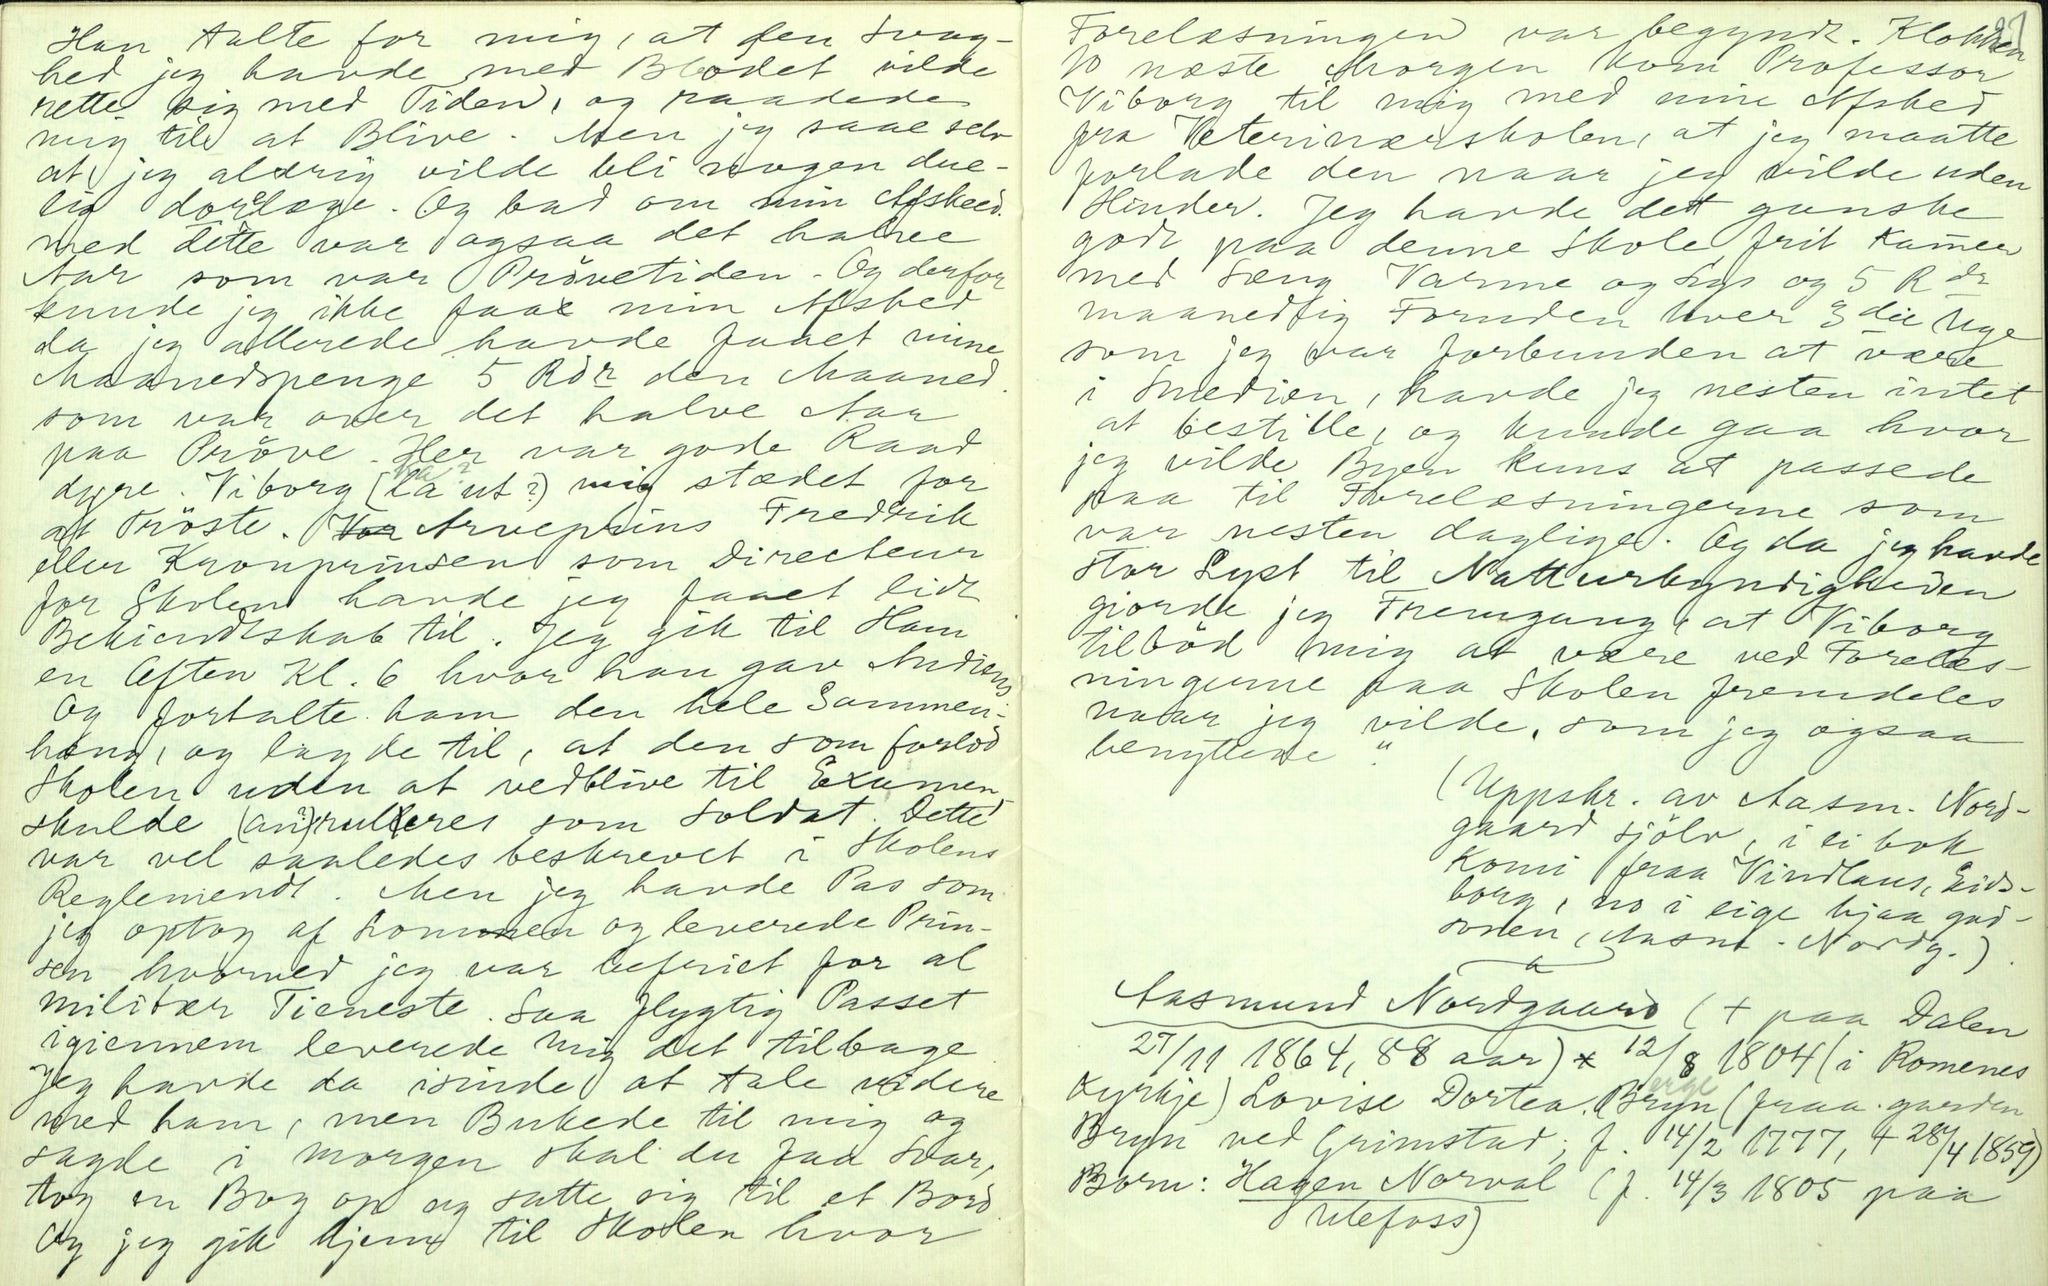 Han talte for mig, at den Svag-
hed jeg havde med Blodet vilde
rette sig med Tiden, og raadede
mig til at Blive. Men jeg saae selv
at jeg aldrig vilde bli nogen due-
lig dorlæge. Og bad om min Afskeed.
med dette var ogsaa det halve
Aar som var Prövetiden. Og derfor
kunde jeg ikke faae min Afsked
da jeg allerede havde faaet mine
Maanedspenge 5 Rdr den Maaned.
som var over det halve Aar
paa Pröve. Her var gode Raad
dyre. Viborg (la ut?) mig stædet for
at Tröste. Arveprins Fredrik
eller Kronprinsen som Directeur
for Skolen havde jeg faaet lidt
Bekiendtskab til. Jeg gik til Ham
en Aften Kl. 6 hvor han gav Audiens
Og fortalte ham den hele Sammen-
hæng, og lagde til, at den som forlod
Skolen uden at vedblive til Examen
skulde (an?)rulleres som Soldat. Dette
var vel saaledes beskrevet i Skolens
Reglemendt. Men jeg havde Pas som
jeg optog af Lommen og leverede Prin-
sen hvorved jeg var befriet for al
militær Tieneste. Saa flygtig Passet
igiennem leverede mig det tilbage
Jeg havde da isinde at tale videre
med ham, men Bukede til mig og
sagde i morgen skal du faa Svar,
tog en Bog op og satte sig til et Bord
Og jeg gik hjem til Skolen hvor
27
Forelæsningen var begyndt. Klokken
10 næste Morgen kom Professor
Viborg til mig med min Afsked
fra Veterinærskolen, at jeg maatte
forlade den naar jeg vilde uden
Hinder. Jeg havde det ganske
godt paa denne Skole frit Kamer
med Seng Varme og Lys og 5 Rdr
maanedlig Foruden hver 3die Uge
som jeg var forbunden at være
i Smedien, havde jeg nesten intet
at bestille, og kunde gaa hvor
jeg vilde i Byen kuns at passede
paa til Forelæsningerne som
var nesten daglige. Og da jeg havde
stor Lyst til Natturkyndigheden
giorde jeg Fremgang, at Viborg
tilböd mig at være ved Forelæs-
ningerne paa Skolen fremdeles
naar jeg vilde, som jeg ogsaa
benyttede."
(Uppskr. av Aasm. Nord-
gaard sjölv, i ei bok
Komi fraa Vindlaus, Eids-
borg, no i eige hjaa gud-
sonen, Aasm. Nordg.)
Aasmund Nordgaard († paa Dalen
27/11 1864, 88 aar) x 12/8 1804 (i Romenes
Kyrkje) Lovise Dortea Bryn (fraa garden
Bryn ved Grimstad; f. 14/2 1777, † 28/4 1859)
Born: Hagen Norval (f. 14/3 1805 paa
Ulefoss)